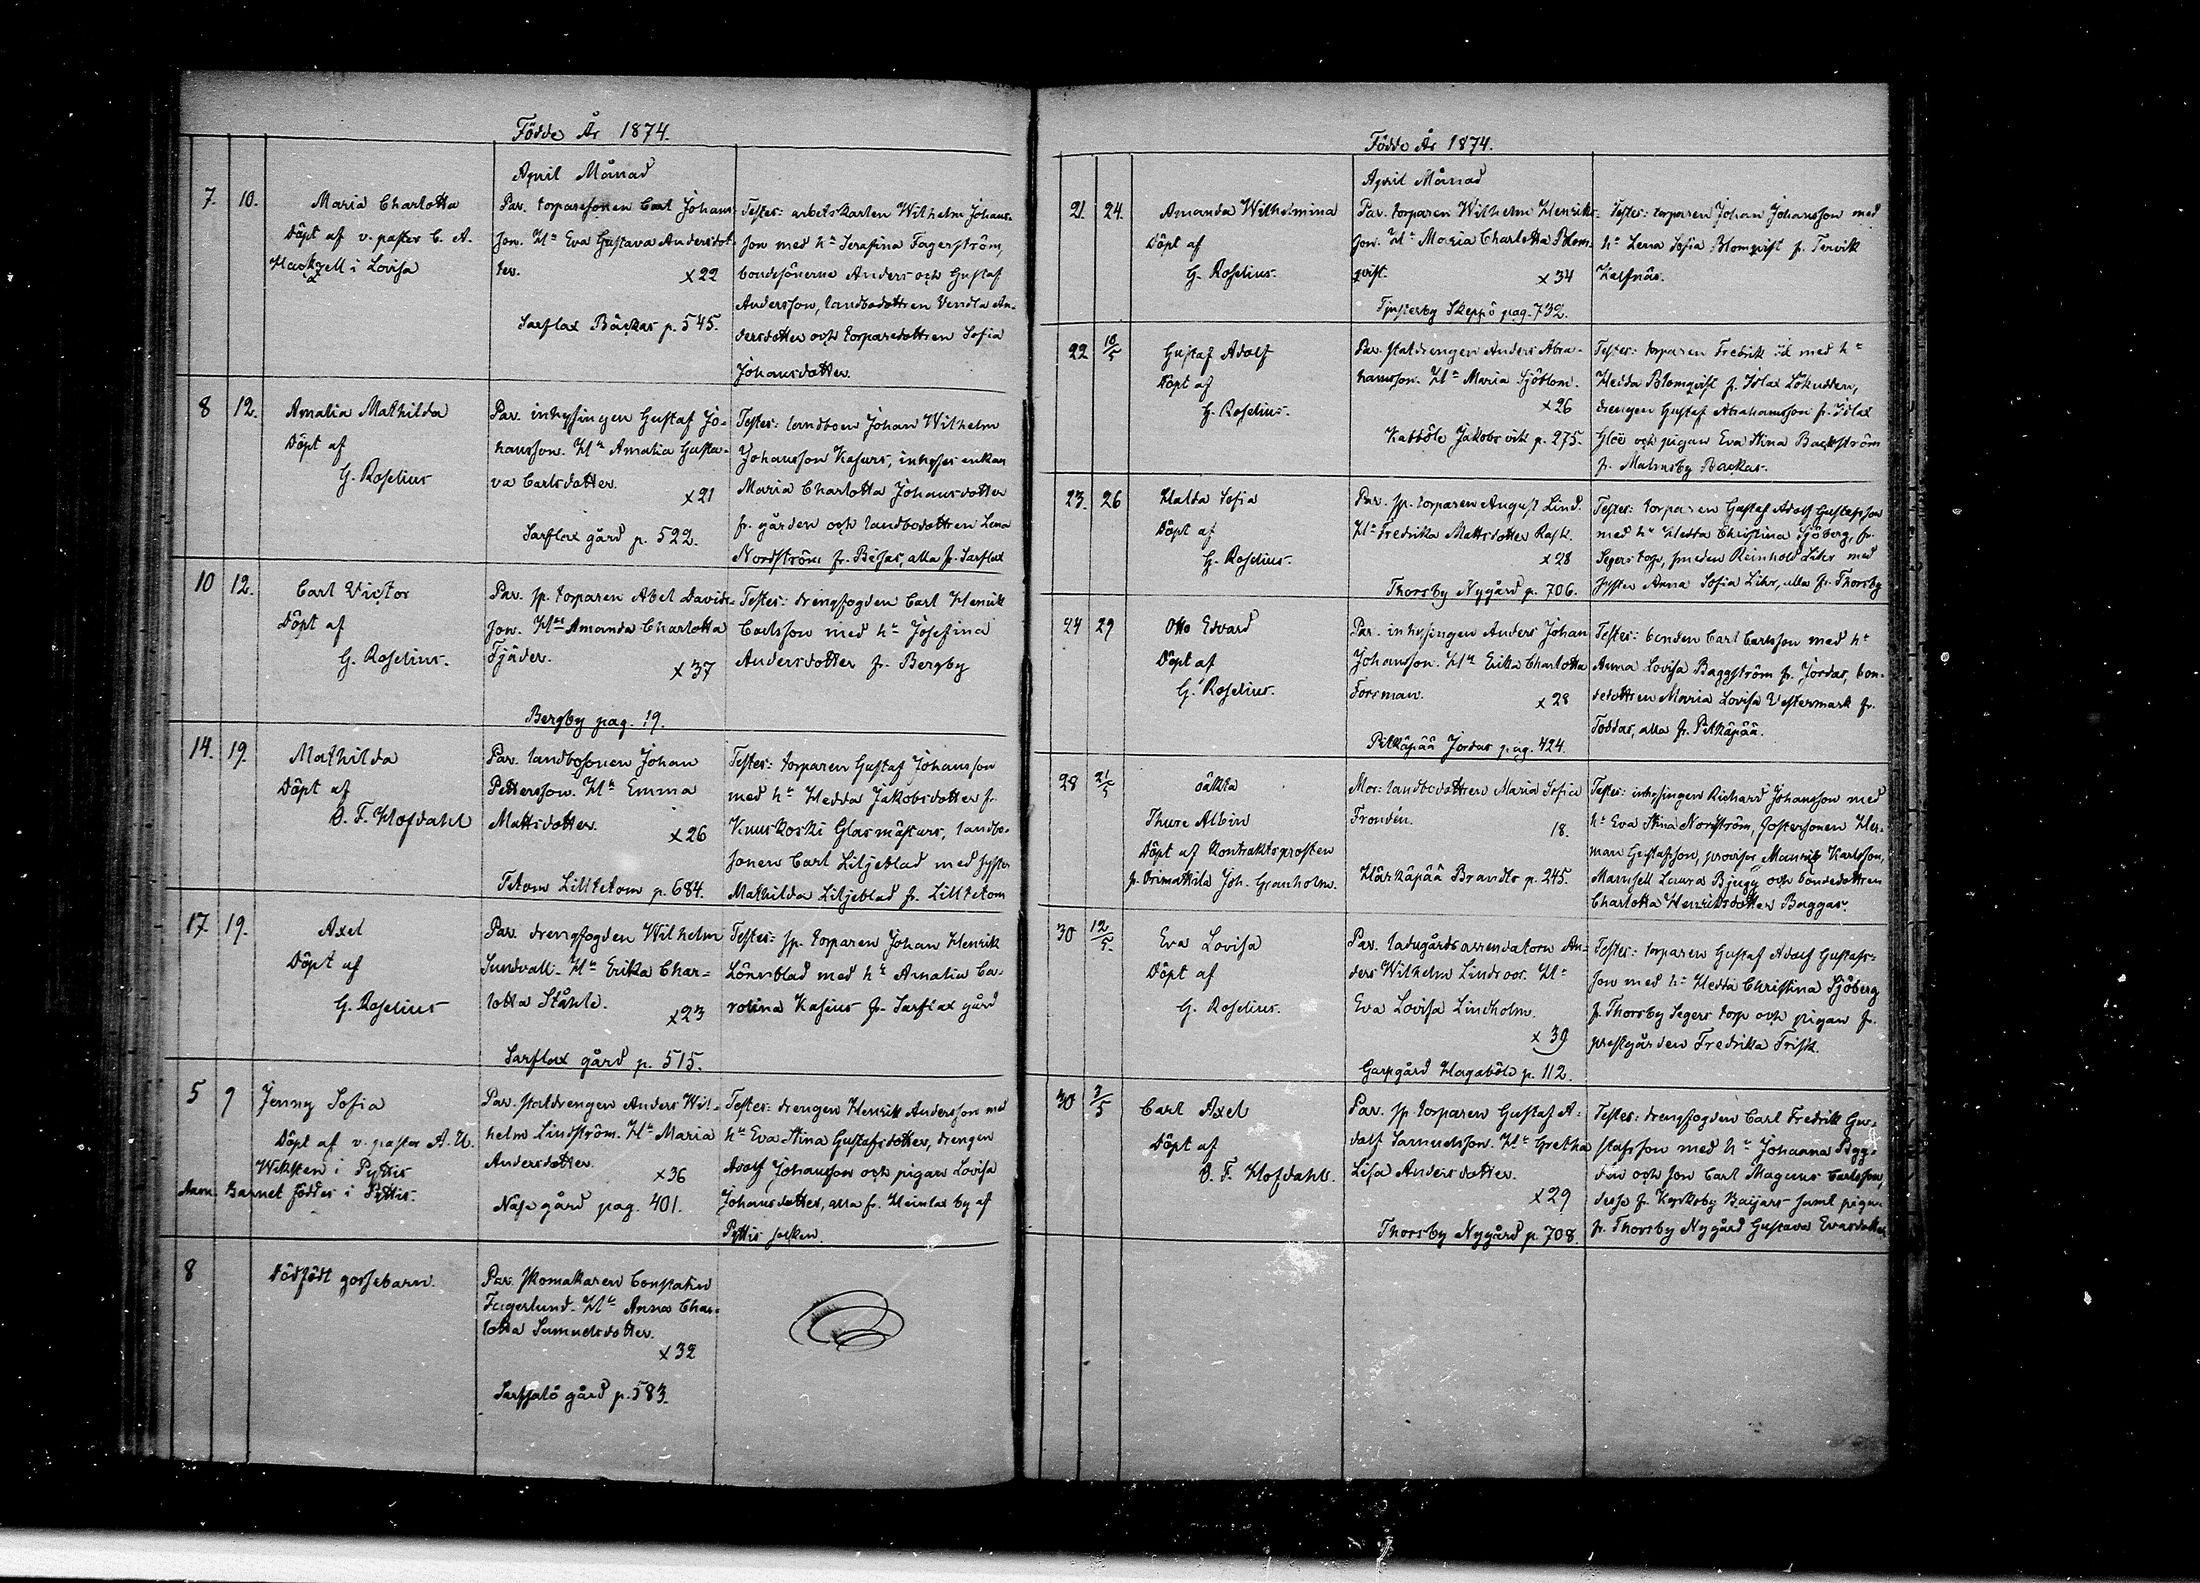 Födde År 1874.
April Månad
7. 10. Maria Charlotta
Döpt af v. pastor C. A.
Hackzell i Lovisa
Par. torparesonen Carl Johans-
son. H:u Eva Gustava Andersdot-
ter. x22
Sarflax Bäckas p. 545.
Testes: arbetskarlen Wilhelm Johans-
son med h:u Serafina Fagerström,
bondesönerne Anders och Gustaf
Andersson, landbodottren Vendla An-
dersdotter och torparedottren Sofia
Johansdotter.
8 12. Amalia Mathilda
Döpt af
G. Roselius
Par. inhysingen Gustaf Jo-
hansson. H:u Amalia Gusta-
va Carlsdotter. x21
Sarflax gård p. 522.
Testes: landboen Johan Wilhelm
Johansson Kasurs, inhyses enkan
Maria Charlotta Johansdotter
fr. gården och landbodottren Lena
Nordström fr. Bisas, alla fr. Sarflax
10 12. Carl Victor
Döpt af
G. Roselius.
Par. sp. torparen Abel Davids-
son. H:u Amanda Charlotta
Tjäder. x37
Bergby pag. 19.
Testes: drengfogden Carl Henrik
Carlsson med h:u Josefina
Andersdotter fr. Bergby
14. 19. Mathilda
Döpt af
B. F. Hofdahl
Par. landbosonen Johan
Pettersson. H:u Emma
Mattsdotter. x26
Tetom Lilltetom p. 684.
Testes: torparen Gustaf Johansson
med h:u Hedda Jakobsdotter fr.
Kuuskoski Glasmästars, landbo-
sonen Carl Liljeblad med syster
Mathilda Liljeblad fr. Lilltetom
17 19. Axel
Döpt af
G. Roselius
Par. drengfogden Wilhelm
Sundvall. H:u Erika Char-
lotta Ståhle. x23
Sarflax gård p. 515.
Testes: sp. torparen Johan Henrik
Lönnblad med h:u Amalia Ca-
rolina Kasius fr. Sarflax gård
5 9 Jenny Sofia
Döpt af v. pastor A. U.
Wiksten i Pyttis
Anm. Barnet föddes i Pyttis.
Par. staldrengen Anders Wil-
helm Lindström. H:u Maria
Andersdotter. x36
Näse gård pag. 401.
Testes: drengen Henrik Andersson med
h:u Eva Stina Gustafsdotter, drengen
Adolf Johansson och pigan Lovisa
Johansdotter, alla fr. Heinlax by af
Pyttis socken
8 Dödfödt gossebarn.
Par. skomakaren Constatin
Fagerlund. H:u Anna Char-
lotta Samuelsdotter.
x32
Sarfsalö gård p. 583.
Födde År 1874.
April Månad
21. 24. Amanda Wilhelmina
Döpt af
G. Roselius.
Par. torparen Wilhelm Henriks-
son. H:u Maria Charlotta Blom-
qvist. x34
Tjusterby Skeppö pag. 732.
Testes: torparen Johan Johansson med
h:u Lena Sofia Blomqvist fr. Tervik
Kalfnäs.
22 10/5 Gustaf Adolf
Döpt af
G. Roselius.
Par. staldrengen Anders Abra-
hamsson. H:u Maria Sjöblom.
x26
Kabböle Jakobsvik p. 275.
Testes: torparen Fredrik Id med h:u
Hedda Blomqvist fr. Islax Lökudden,
drengen Gustaf Abrahamsson fr. Islax
Gloë och pigan Eva Stina Backström
fr. Malmsby Backas.
23. 26 Hulda Sofia
Döpt af
G. Roselius.
Par. sp. torparen August Lind.
H:u Fredrika Mattsdotter Rask.
x28
Thorsby Nygård p. 706.
Testes: torparen Gustaf Adolf Gustafsson
med h:u Hedda Christina Sjöberg, fr.
Segers torp, smeden Reinhold Lihr med
syster Anna Sofia Lihr, alla fr. Thorsby
24 29 Otto Edvard
Döpt af
G. Roselius.
Par. inhysingen Anders Johan
Johansson. H:u Erika Charlotta
Forsman. x28
Pitkäpää Jordas pag. 424.
Testes: bonden Carl Carlsson med h:u
Anna Lovisa Baggström fr. Jordas, bon-
dedottren Maria Lovisa Vestermark fr.
Toddas, alla fr. Pitkäpää.
28 21/5 oäkta
Thure Albin
Döpt af Kontraktsprosten
fr. Orimattila Joh. Granholm.
Mor: landbodottren Maria Sofia
Frondén. 18.
Härkäpää Brandts p. 245.
Testes: inhysingen Richard Johansson med
h:u Eva Stina Nordström, fostersonen Her-
man Gustafsson, provisor Mauritz Karlsson,
Mamsell Laura Bjugg och bondedottren
Charlotta Henriksdotter Baggas.
30 12/5. Eva Lovisa
Döpt af
G. Roselius.
Par. ladugårdsarrendatorn An-
ders Wilhelm Lindroos. H:u
Eva Lovisa Lindholm.
x 39
Garpgård Hagaböle p. 112.
Testes: torparen Gustaf Adolf Gustafs-
son med h:u Hedda Christina Sjöberg
fr. Thorsby Segers torp och pigan fr.
prestgården Fredrika Frisk.
30 3/5 Carl Axel
Döpt af
B. F. Hofdahl.
Par. sp. torparen Gustaf A-
dolf Samuelsson. H:u Gretha
Lisa Andersdotter.
x29
Thorsby Nygård p. 708.
Testes: drengfogden Carl Fredrik Gus-
stafsson med h:u Johanna Bygg-
din och son Carl Magnus Carlsson,
desse fr. Kyrkoby Baijars samt pigan
fr. Thorsby Nygård Gustava Evasdotter